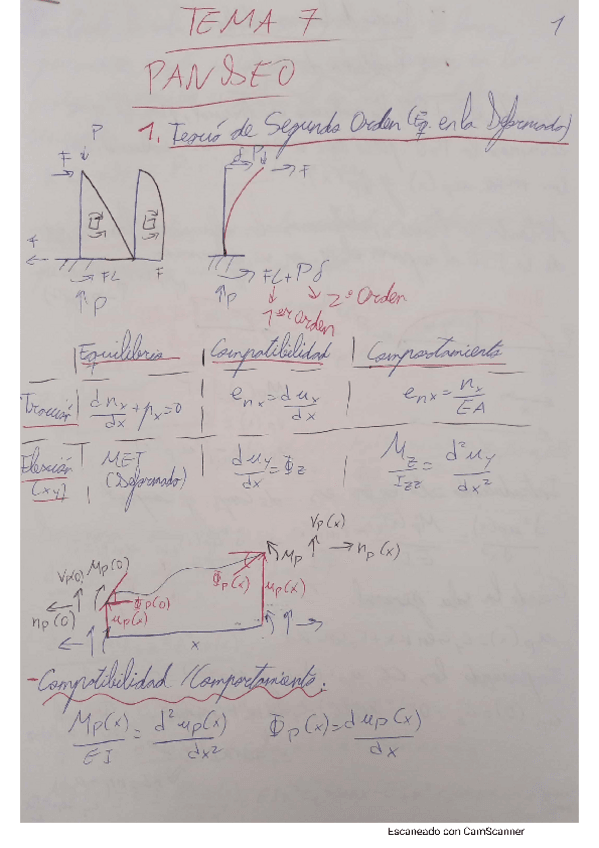 TEMA 7
1
PANDEO
1. Teoría de Segundo Orden (Eq. en la Deformada)
P
F
δ P
F
F
FL
F
P
FL + Pδ
P
1er Orden
2º Orden
Equilibrio | Compatibilidad | Comportamiento
Tracción | dnx/dx + px = 0 | enx = dux/dx | enx = nx/EA
Flexión (xy) | MEI (Deformada) | duy/dx = Φz | Mz/Izz = d²uy/dx²
Vp(x)
Mp
np(x)
Vp(0)
Mp(0)
Φp(x)
Φp(0)
up(x)
np(0)
up(x)
x
- Compatibilidad / Comportamiento:
Mp(x)/EI = d²up(x)/dx² Φp(x) = dup(x)/dx
Escaneado con CamScanner